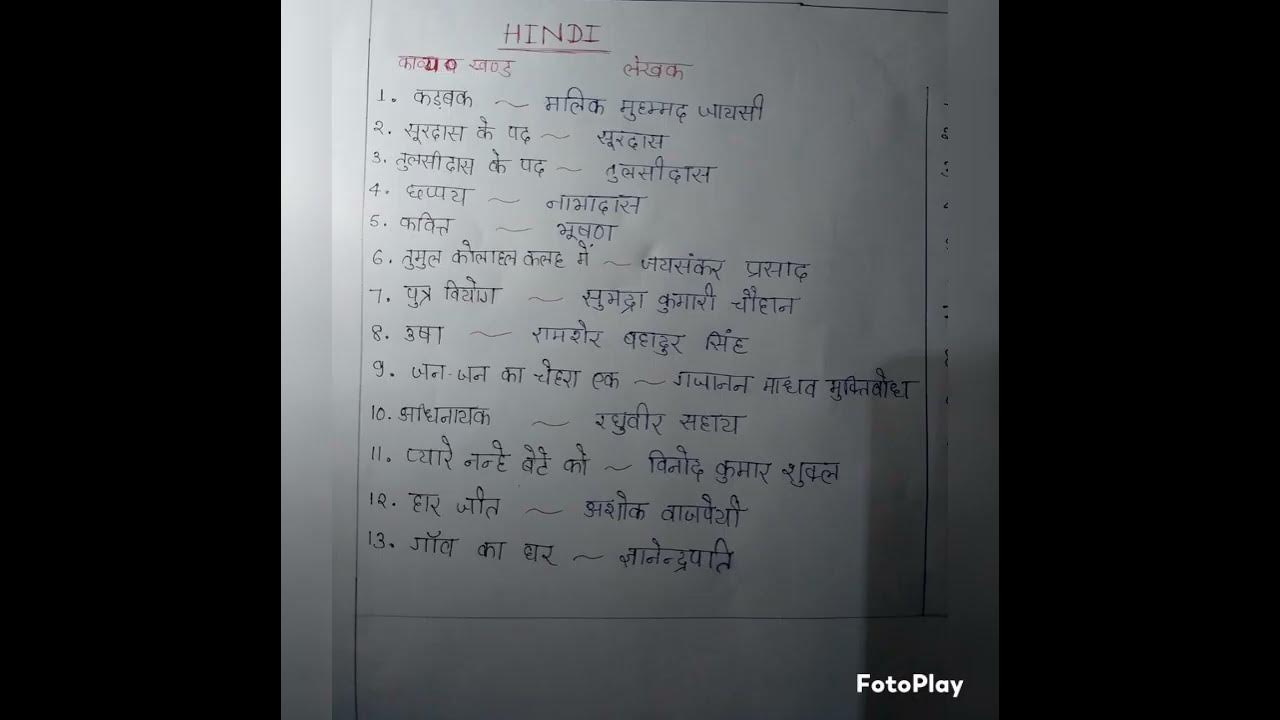 HINDI
काव्य खण्ड लेखक
1. कड़बक ~ मलिक मुहम्मद जायसी
2. सूरदास के पद ~ सूरदास
3. तुलसीदास के पद ~ तुलसीदास
4. छप्पय ~ नाभादास
5. कवित्त ~ भूषण
6. तुमुल कोलाहल कलह में ~ जयसंकर प्रसाद
7. पुत्र वियोग ~ सुभद्रा कुमारी चौहान
8. उषा ~ रामशेर बहादुर सिंह
9. जन-जन का चेहरा एक ~ गजानन माधव मुक्तिबोध
10. अधिनायक ~ रघुवीर सहाय
11. प्यारे नन्हे बेटे को ~ विनोद कुमार शुक्ल
12. हार जीत ~ अशोक वाजपेयी
13. गाँव का घर ~ ज्ञानेन्द्रपति
FotoPlay